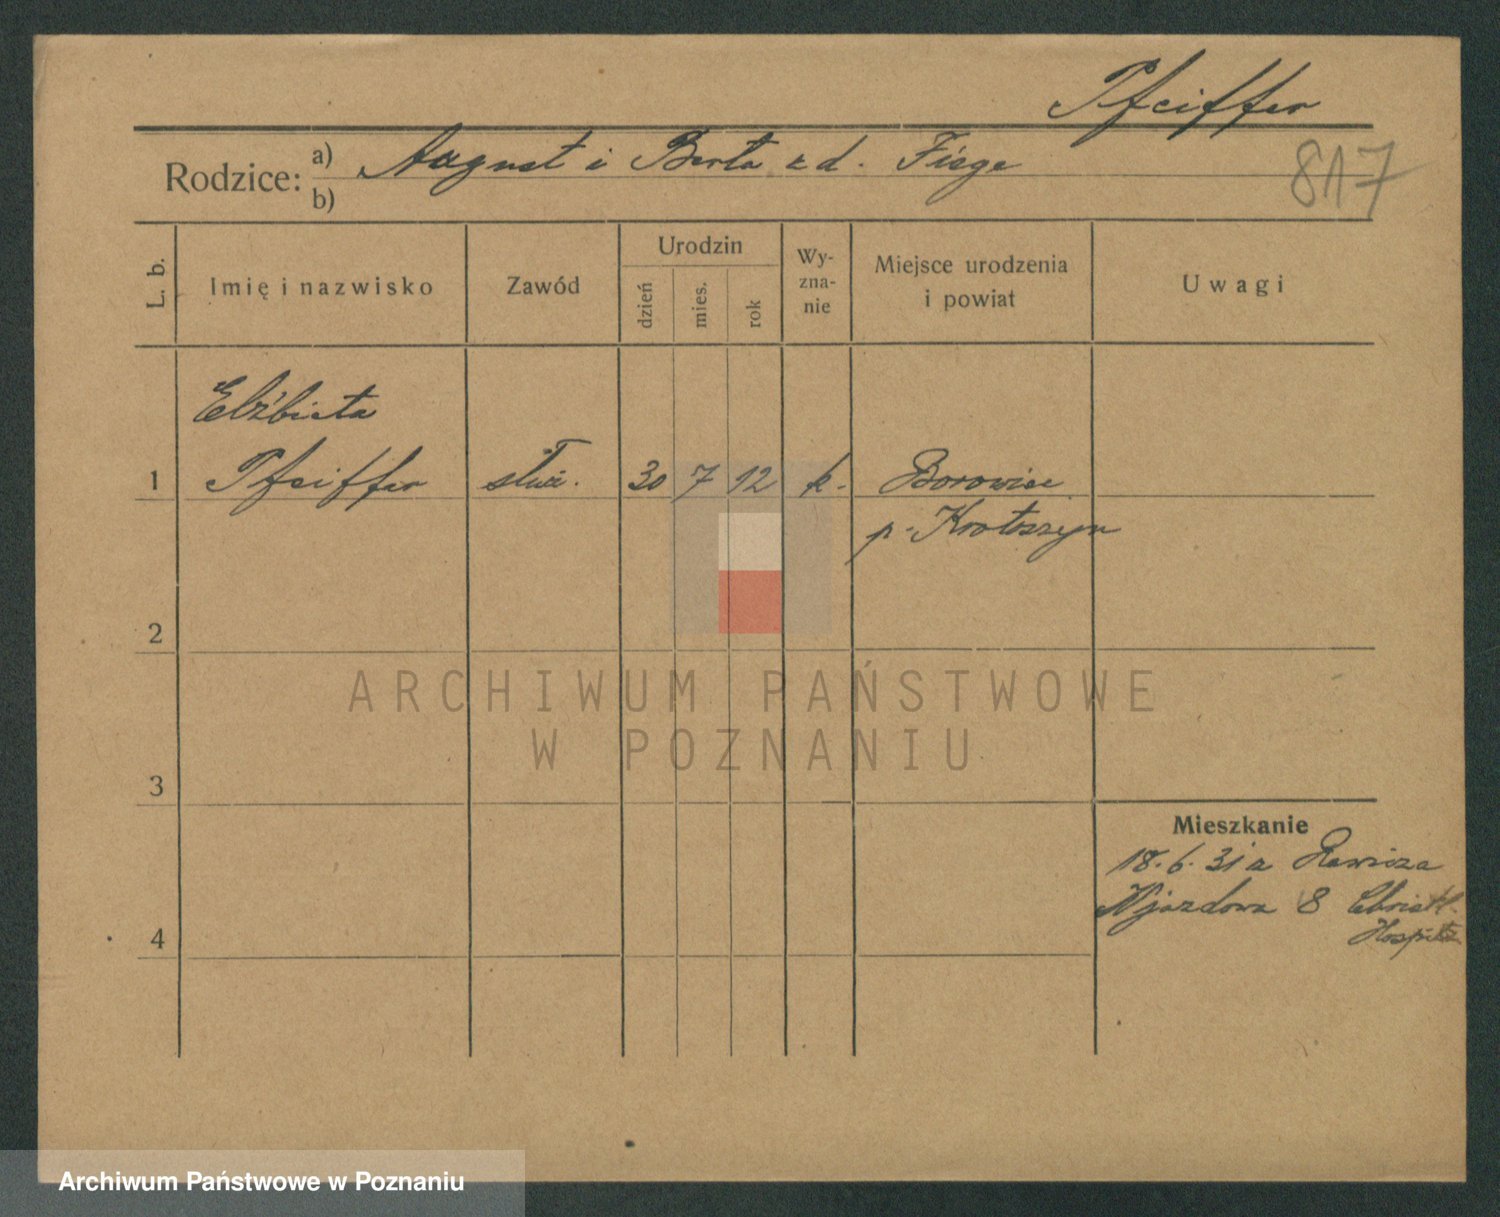 Pfeiffer
Rodzice: a) August i Berta z d. Fiege
b)
817
L. b.
Imię i nazwisko
Zawód
Urodzin
dzień
mies.
rok
Wy-
zna-
nie
Miejsce urodzenia
i powiat
Uwagi
Elżbieta
1 Pfeiffer służ. 30 7 12 k. Borowice
p. Krotoszyn
2
ARCHIWUM PAŃSTWOWE
W POZNANIU
3
Mieszkanie
18.6.31 z Rawicza
Wjazdowa 8 Christl.
Hospitz
4
Archiwum Państwowe w Poznaniu